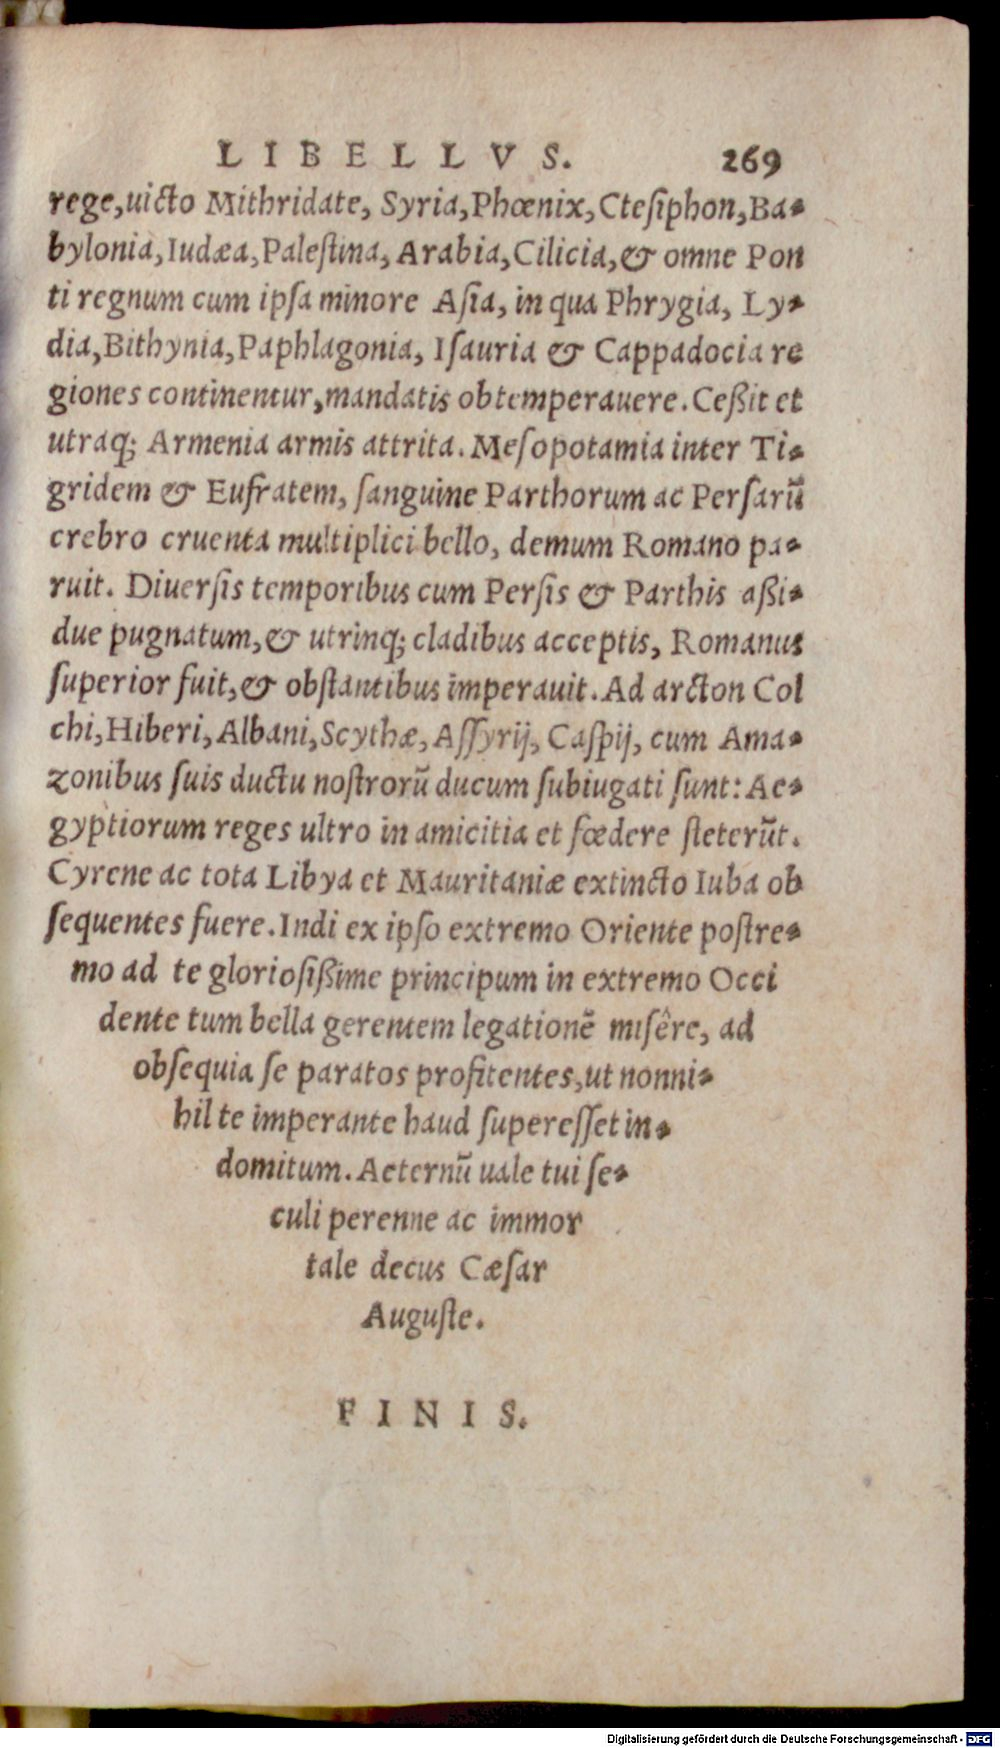 LIBELLVS. 269
rege,uicto Mithridate, Syria,Phœnix,Ctesiphon,Ba-
bylonia,Iudæa,Palestina, Arabia,Cilicia,& omne Pon
ti regnum cum ipsa minore Asia, in qua Phrygia, Ly-
dia,Bithynia,Paphlagonia, Isauria & Cappadocia re
giones continentur,mandatis obtemperauere. Ceßit et
utraq; Armenia armis attrita. Mesopotamia inter Ti-
gridem & Eufratem, sanguine Parthorum ac Persarū
crebro cruenta multiplici bello, demum Romano pa-
ruit. Diuersis temporibus cum Persis & Parthis aßi-
due pugnatum,& utrinq; cladibus acceptis, Romanus
superior fuit,& obstantibus imperauit. Ad arcton Col
chi,Hiberi, Albani,Scythæ, Assyrij, Caspij, cum Ama-
zonibus suis ductu nostrorū ducum subiugati sunt: Ae-
gyptiorum reges ultro in amicitia et fœdere steterūt.
Cyrene ac tota Libya et Mauritaniæ extincto Iuba ob
sequentes fuere. Indi ex ipso extremo Oriente postre-
mo ad te gloriosißime principum in extremo Occi
dente tum bella gerentem legationē misêre, ad
obsequia se paratos profitentes,ut nonni-
hil te imperante haud superesset in-
domitum. Aeternū uale tui se-
culi perenne ac immor
tale decus Cæsar
Auguste.
FINIS.
Digitalisierung gefördert durch die Deutsche Forschungsgemeinschaft - DFG